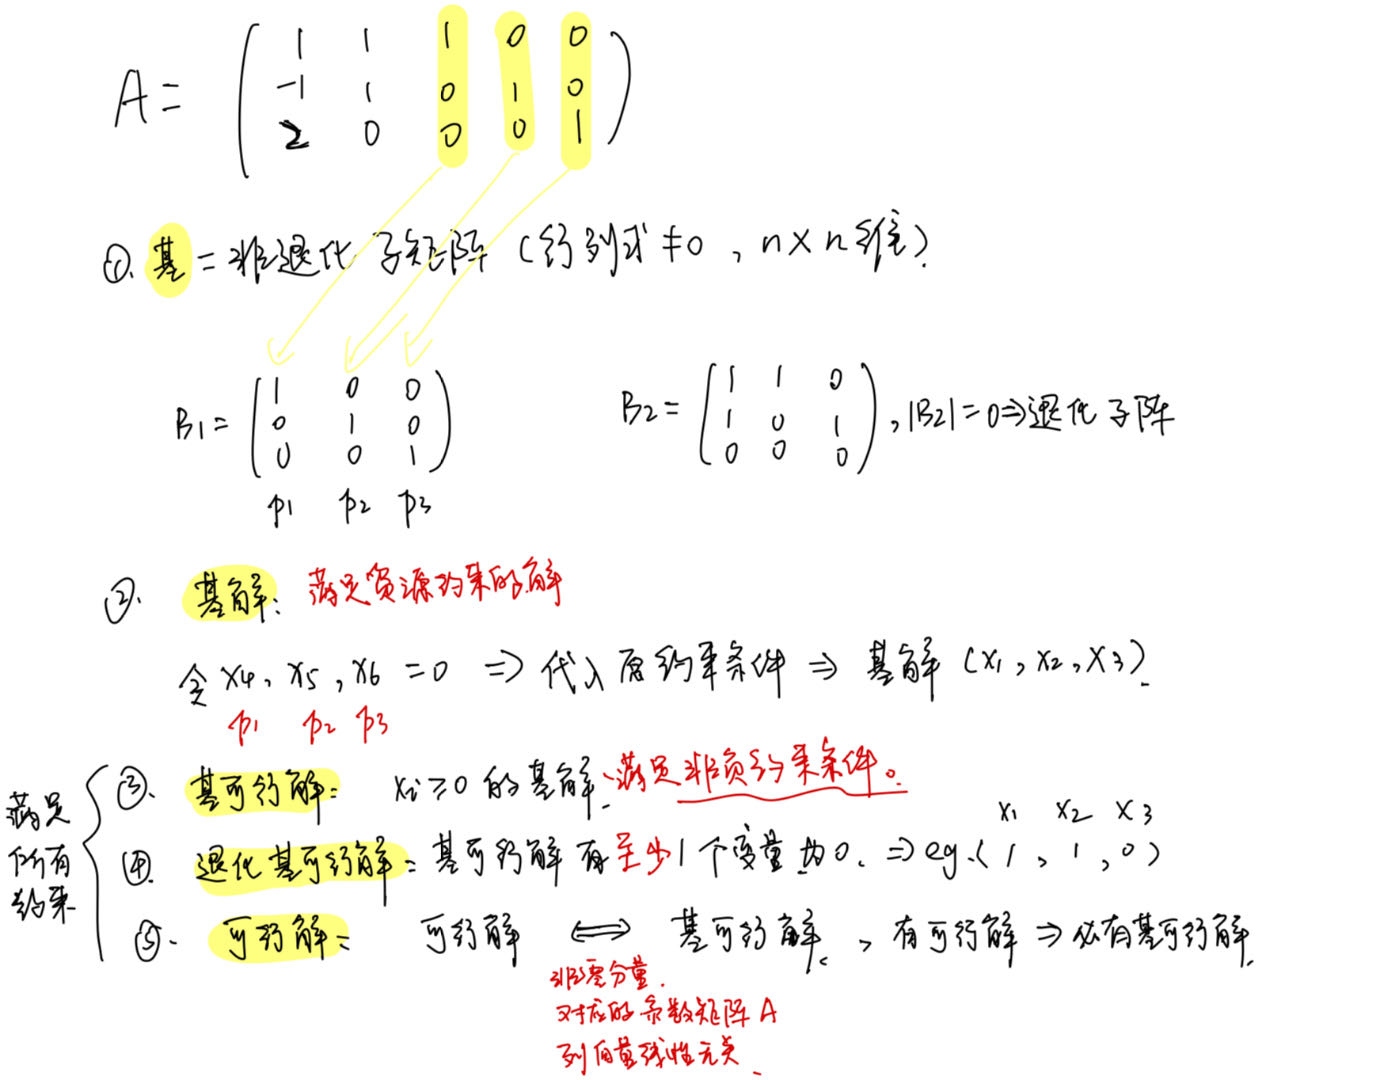 A = ( 1 1 1 0 0
-1 1 0 1 0
2 0 0 0 1 )
①. 基 = 非退化子矩阵 (行列式≠0, n×n维).
B1 = ( 1 0 0
0 1 0
0 0 1 )
p1 p2 p3
B2 = ( 1 1 0
1 0 1
0 0 0 ), |B2|=0⇒退化子阵
②. 基解: 满足资源约束的解
令 x4, x5, x6 = 0 ⇒ 代入原约束条件 ⇒ 基解 (x1, x2, x3).
p1 p2 p3
满足所有约束
③. 基可行解: xi≥0 的基解. 满足非负约束条件。
x1 x2 x3
④. 退化基可行解: 基可行解有至少1个变量为0. ⇒ eg.(1, 1, 0)
⑤. 可行解: 可行解 ⟺ 基可行解, 有可行解 ⇒ 必有基可行解.
非零分量.
对应的系数矩阵A
列向量线性无关.